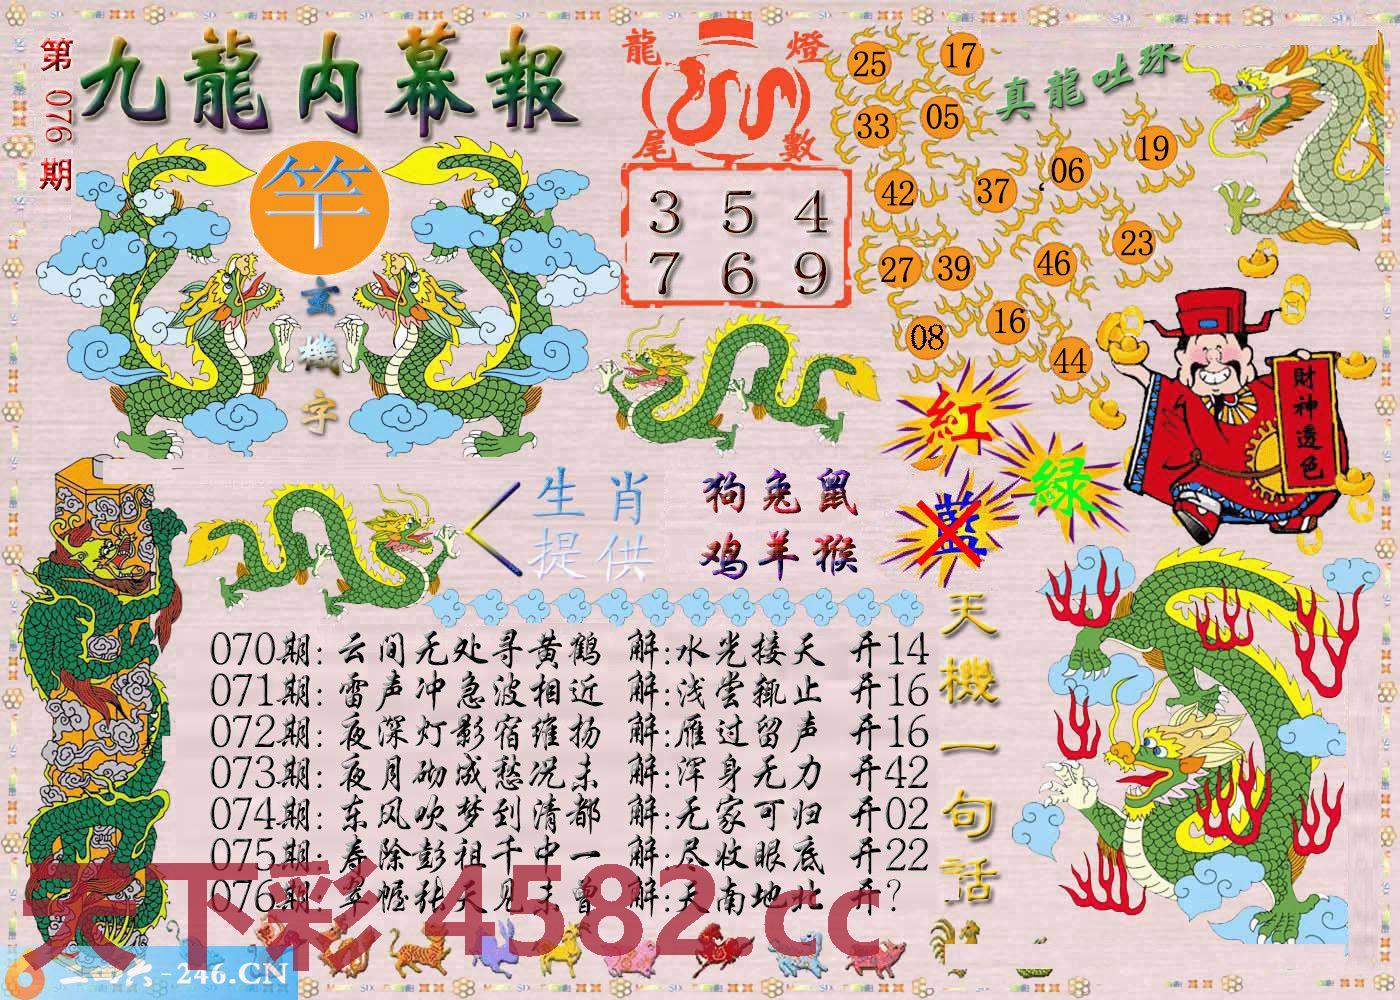 第076期
九龍内幕報
竿
玄機字
龍燈尾數
3 5 4
7 6 9
真龍吐珠
25 17
33 05
19
06
42 37
23
27 39 46
08 16
44
財神透色
紅
绿
藍
生肖 狗兔鼠
提供 鸡羊猴
天機一句话
070期: 云间无处寻黄鹤 解:水光接天 开14
071期: 雷声冲急波相近 解:浅尝辄止 开16
072期: 夜深灯影宿维扬 解:雁过留声 开16
073期: 夜月砌成愁况未 解:浑身无力 开42
074期: 东风吹梦到清都 解:无家可归 开02
075期: 寿除彭祖千中一 解:尽收眼底 开22
076期: 翠幄张天见未曾 解:天南地北 开?
天下彩 4582.cc
二四六-246.CN